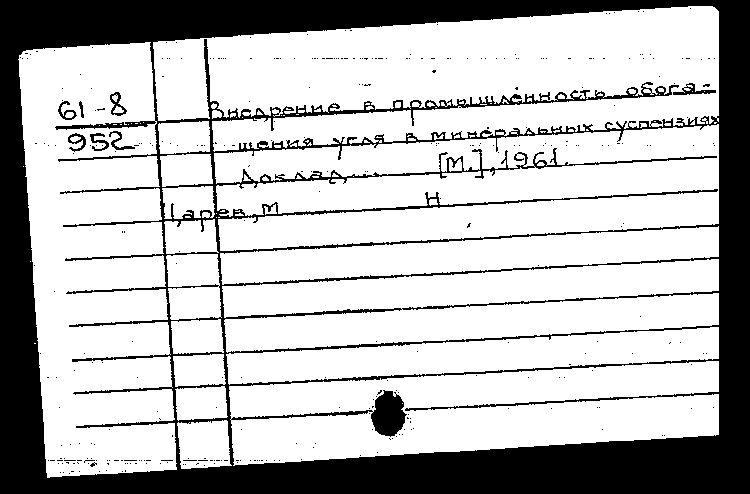 61-8 Внедрение в промышленность обога-
952 щения угля в минеральных суспензиях
Доклад... [М.], 1961.
Царев, М Н